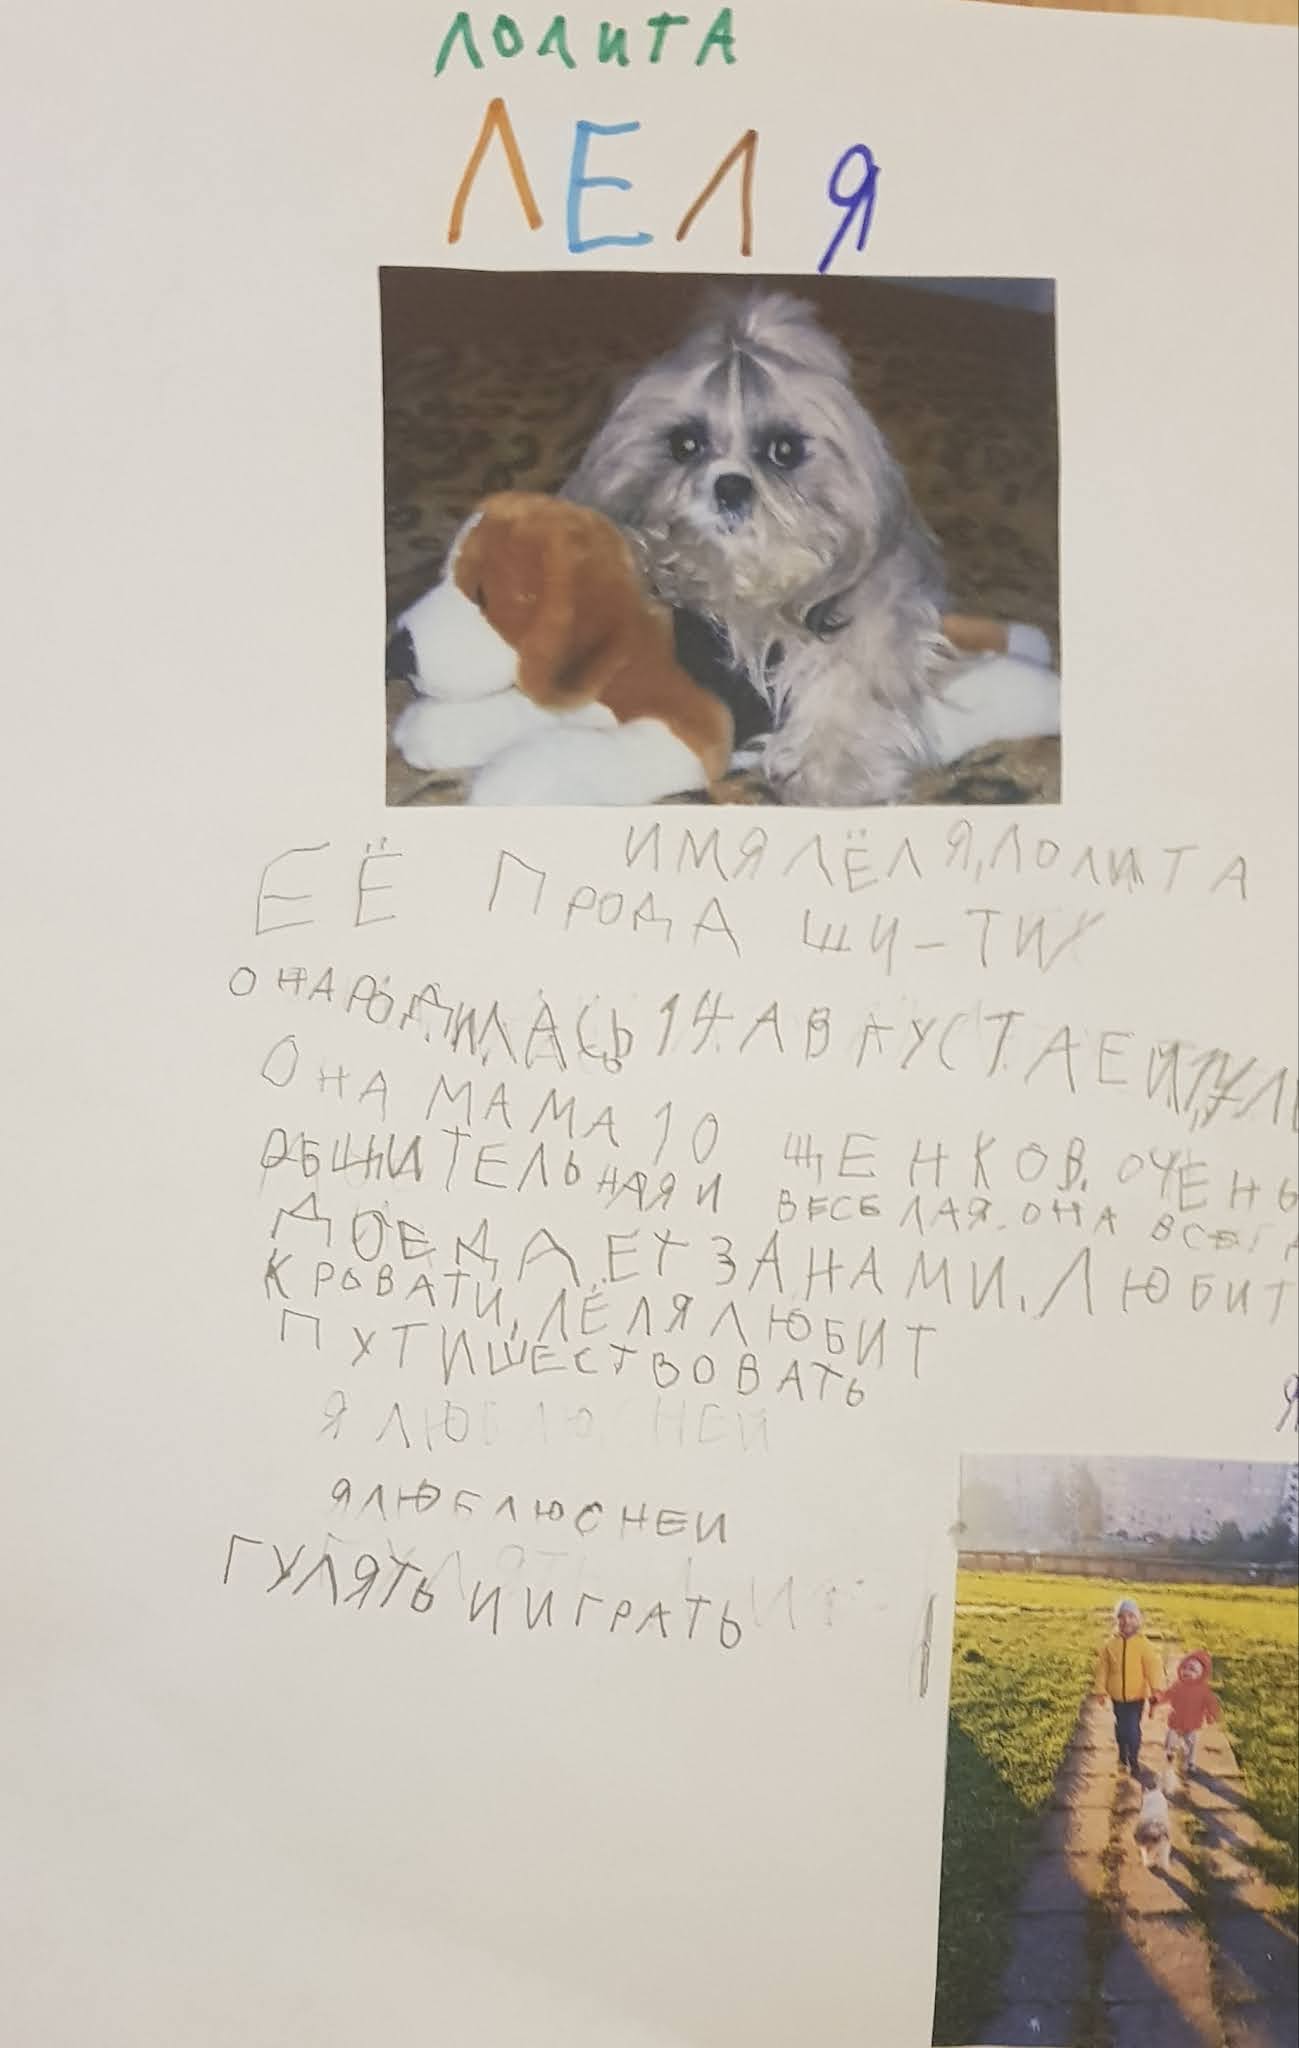 ЛОЛИТА
ЛЕЛЯ
ИМЯ ЛЁЛЯ, ЛОЛИТА
ЕЁ ПРОДА ШИ-ТИХ
ОНАРОДИЛАСЬ 14 АВГУСТА ЕЙ
ОНА МАМА 10 ЩЕНКОВ. ОЧЕНЬ
ОБЩИТЕЛЬНАЯ И ВЕСЕЛАЯ. ОНА ВСЕГА
ДОЕДАЕТ ЗАНАМИ. ЛЮБИТ
КРОВАТИ. ЛЁЛЯ ЛЮБИТ
ПУТИШЕСТВОВАТЬ
Я ЛЮБЛЮ СНЕЙ
ЯЛЮБЛЮСНЕИ
ГУЛЯТЬ И ИГРАТЬ
Я